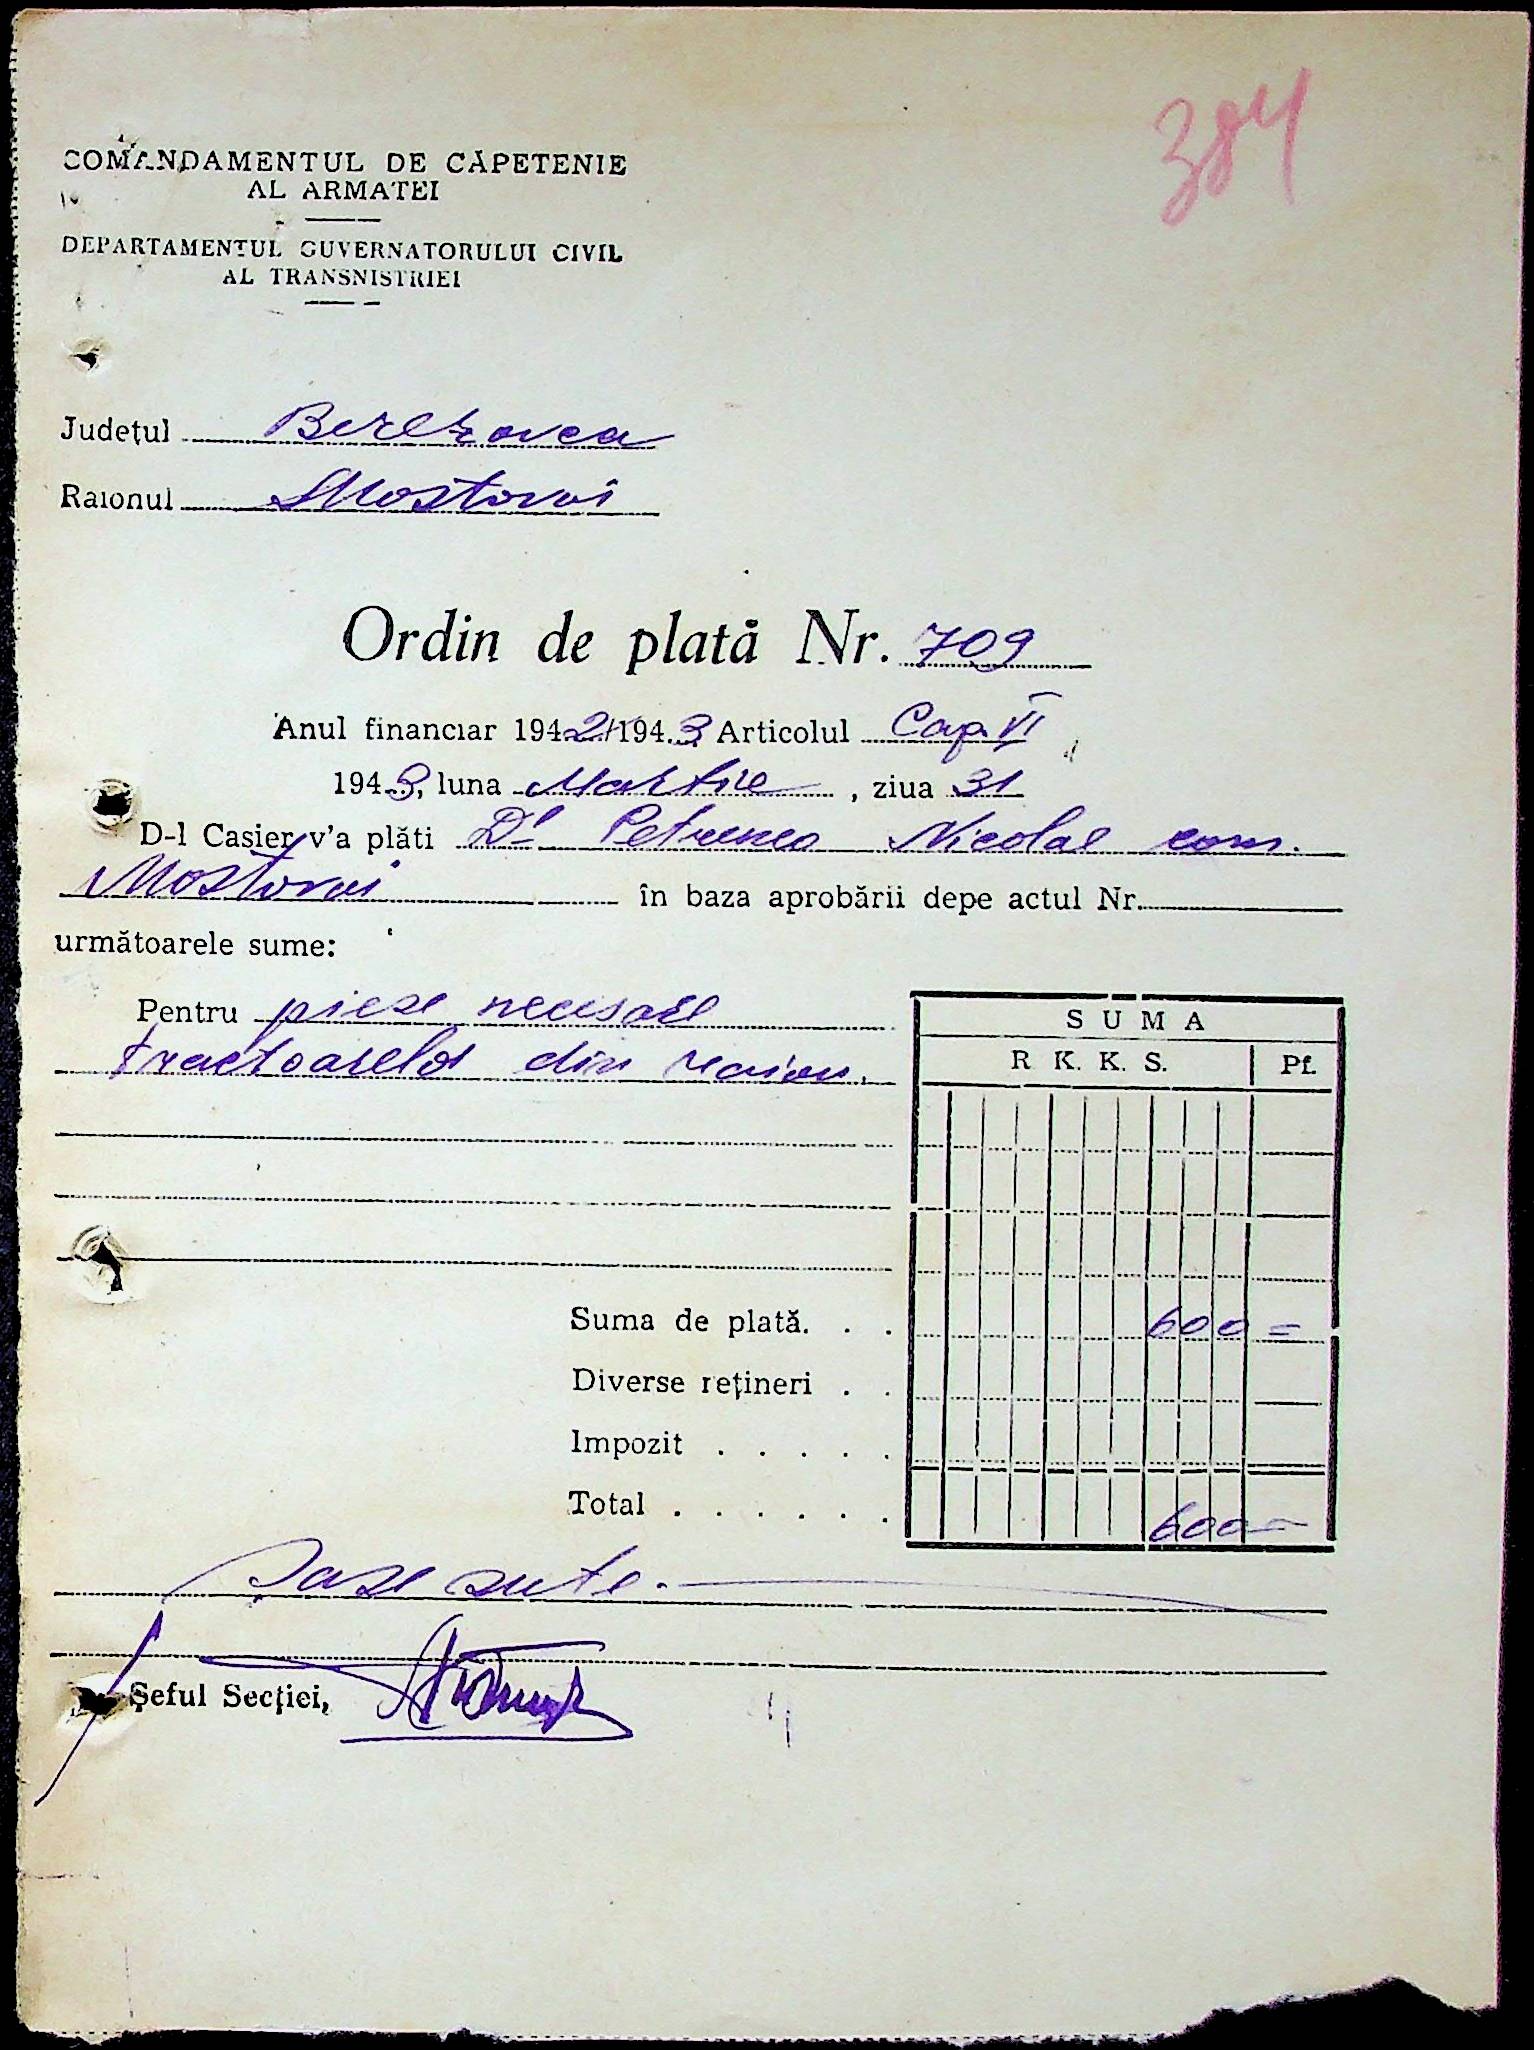 384
COMANDAMENTUL DE CĂPETENIE
AL ARMATEI
DEPARTAMENTUL GUVERNATORULUI CIVIL
AL TRANSNISTRIEI
Județul Berezovca
Raionul Mostovoi
Ordin de plată Nr. 709
Anul financiar 1942/1943 Articolul Cap. VI
1943, luna Martie, ziua 31
D-l Casier v'a plăti Dl Petrenco Nicolae com.
Mostovoi în baza aprobării depe actul Nr.
următoarele sume:
Pentru piese necesare
tractoarelor din raion.
SUMA
R K. K. S. Pf.
Suma de plată. . . 600 =
Diverse rețineri . .
Impozit . . . . .
Total . . . . . . 600 —
Șase sute. —
Șeful Secției,